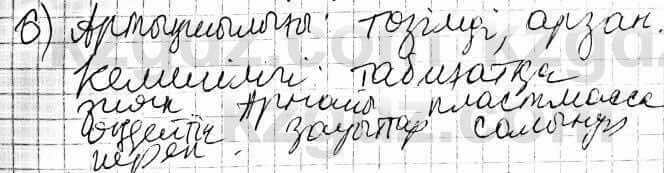 6) Артықшылығы: төзімді, арзан.
Кемшілігі: табиғатқа
зиян Арнайы пластмасса
өңдейтін зауыттар салынуы
керек.